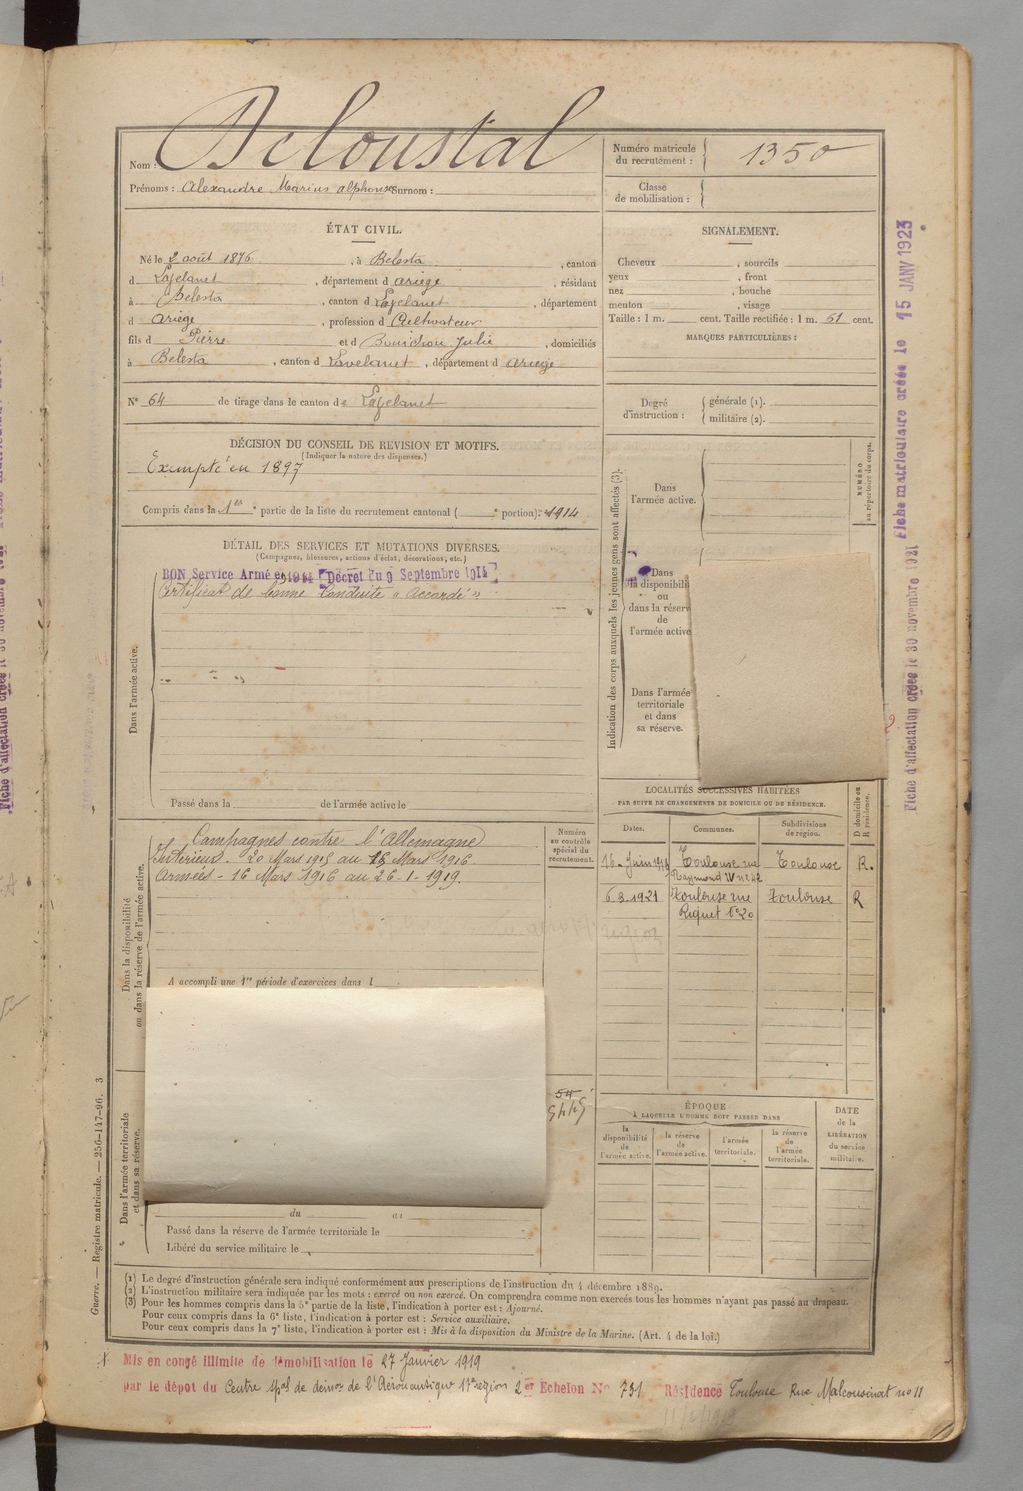 Nom : Beloustal
Prénoms : Alexandre Marius alphonse Surnom :
Numéro matricule du recrutement : 1350
Classe de mobilisation :
ÉTAT CIVIL.
Né le 2 août 1876, à Belesta, canton
d Lavelanet, département d ariège, résidant
à Belesta, canton d Lavelanet, département
d ariège, profession d Cultivateur
fils d Pierre et d Bonichou Julie, domiciliés
à Belesta, canton d Lavelanet, département d ariège
N° 64 de tirage dans le canton de Lavelanet
SIGNALEMENT.
Cheveux , sourcils
yeux , front
nez , bouche
menton , visage
Taille : 1 m. cent. Taille rectifiée : 1 m. 51 cent.
MARQUES PARTICULIÈRES :
Degré d'instruction : générale (1).
militaire (2).
DÉCISION DU CONSEIL DE REVISION ET MOTIFS.
(Indiquer la nature des dispenses.)
Exempté en 1897
Compris dans la 1re partie de la liste du recrutement cantonal ( e portion). 1914
DÉTAIL DES SERVICES ET MUTATIONS DIVERSES.
(Campagnes, blessures, actions d'éclat, décorations, etc.)
BON Service Armé en 1914 Décret du 9 Septembre 1914
Certificat de bonne Conduite "accordé"
Dans l'armée active.
Passé dans la de l'armée active le
Indication des corps auxquels les jeunes gens sont affectés (3).
NUMÉRO au répertoire du corps.
Dans l'armée active.
Dans
la disponibili
ou
dans la réserv
de
l'armée active
Dans l'armée
territoriale
et dans
sa réserve.
Dans la disponibilité
ou dans la réserve de l'armée active.
Campagnes contre l'Allemagne
Intérieur - 20 Mars 1915 au 15 Mars 1916
Armées - 16 Mars 1916 au 26-1-1919.
A accompli une 1re période d'exercices dans l
Numéro
en contrôle
spécial du
recrutement.
54
LOCALITÉS SUCCESSIVES HABITÉES
PAR SUITE DE CHANGEMENTS DE DOMICILE OU DE RÉSIDENCE.
Dates. Communes. Subdivisions de région. D domicile ou R résidence.
Toulouse rue Toulouse R.
Raymond IV
6 3 1921 Toulouse rue Toulouse R
Riquet
ÉPOQUE
À LAQUELLE L'HOMME DOIT PASSER DANS
la disponibilité de l'armée active.
la réserve de l'armée active.
l'armée territoriale.
la réserve de l'armée territoriale.
DATE de la LIBÉRATION du service militaire.
Dans l'armée territoriale
et dans sa réserve.
du au
Passé dans la réserve de l'armée territoriale le
Libéré du service militaire le
(1) Le degré d'instruction générale sera indiqué conformément aux prescriptions de l'instruction du 4 décembre 1889.
(2) L'instruction militaire sera indiquée par les mots : exercé ou non exercé. On comprendra comme non exercés tous les hommes n'ayant pas passé au drapeau.
(3) Pour les hommes compris dans la 5e partie de la liste, l'indication à porter est : Ajourné.
Pour ceux compris dans la 6e liste, l'indication à porter est : Service auxiliaire.
Pour ceux compris dans la 7e liste, l'indication à porter est : Mis à la disposition du Ministre de la Marine. (Art. 4 de la loi.)
Mis en congé illimité de démobilisation le 27 Janvier 1919
par le dépot du Centre spal de démon de l'Aéronautique 17e région 2er Echelon No 731 Résidence Toulouse Rue Malcousinat no 11
Guerre. — Registre matricule. — 256-147-96. 3
Fiche d'affectation créée le 30 novembre 1921 Fiche matriculaire créée le 15 JANV 1923